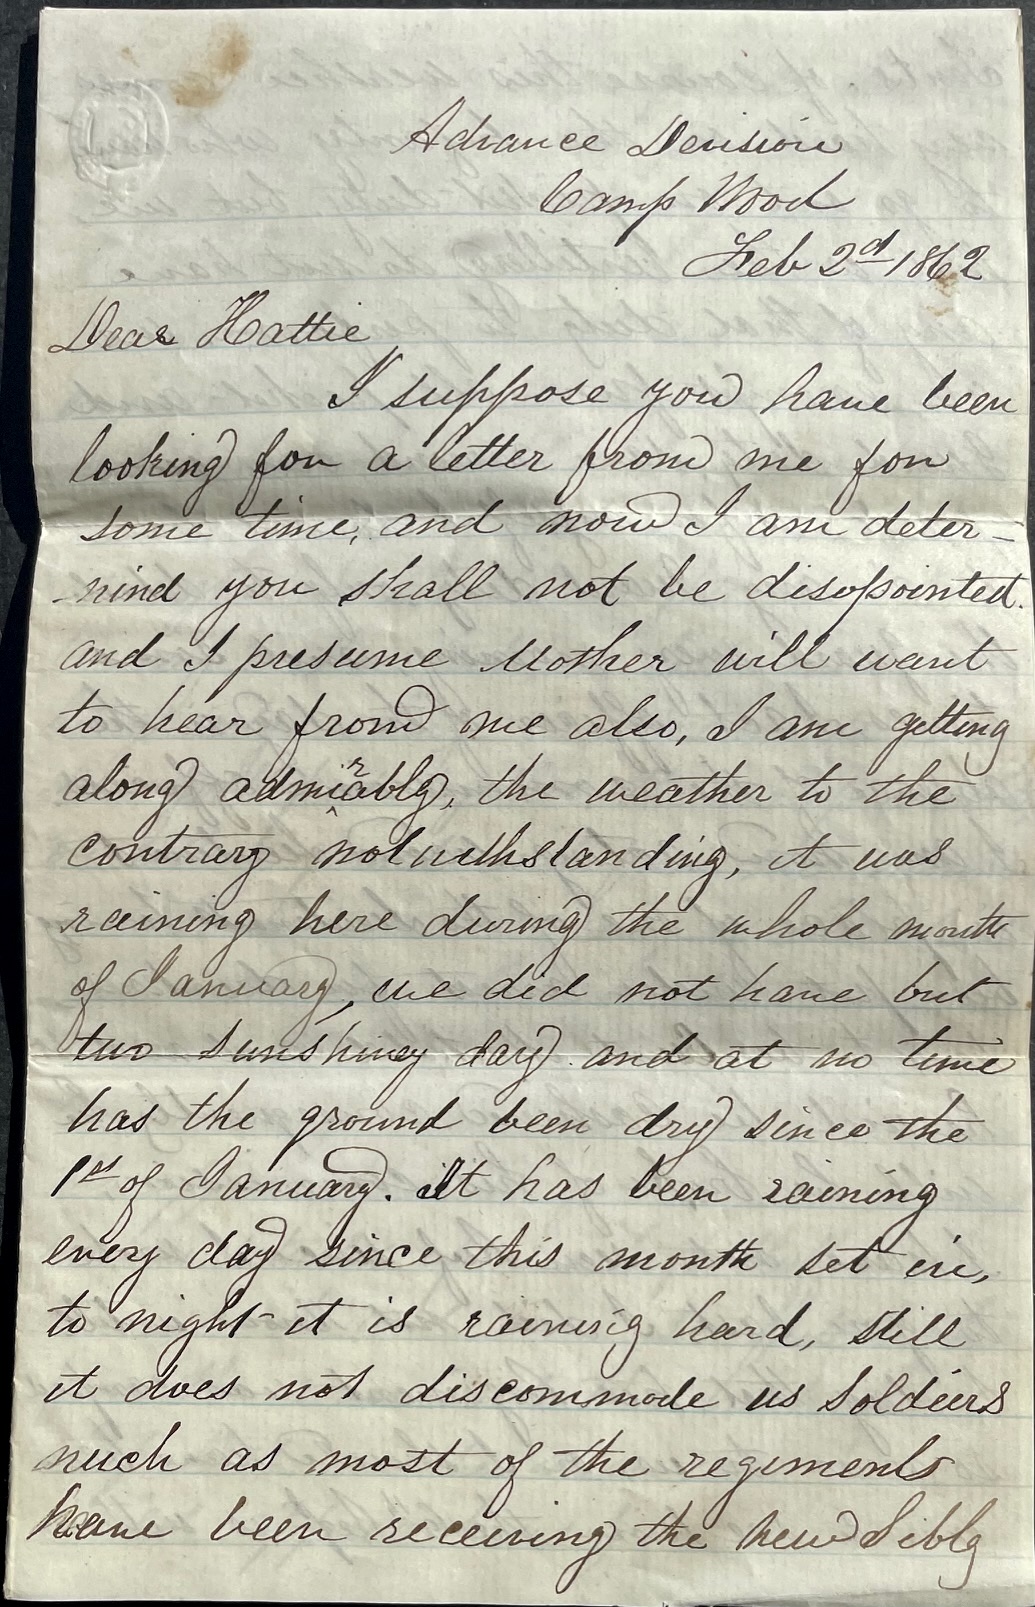 Advance Devision
Camp Wood
Feb 2d 1862
Dear Hattie
I suppose you have been
looking for a letter from me for
some time, and now I am deter-
mind you shall not be disopointed.
and I presume Mother will want
to hear from me also, I am getting
along admirably, the weather to the
contrary notwithstanding, it was
raining here during the whole month
of January, we did not have but
two sunshiney day and at no time
has the ground been dry since the
1st of January. It has been raining
every day since this month set in,
to night it is raining hard, still
it does not discommode us soldiers
much as most of the regiments
have been receiving the new Sibly